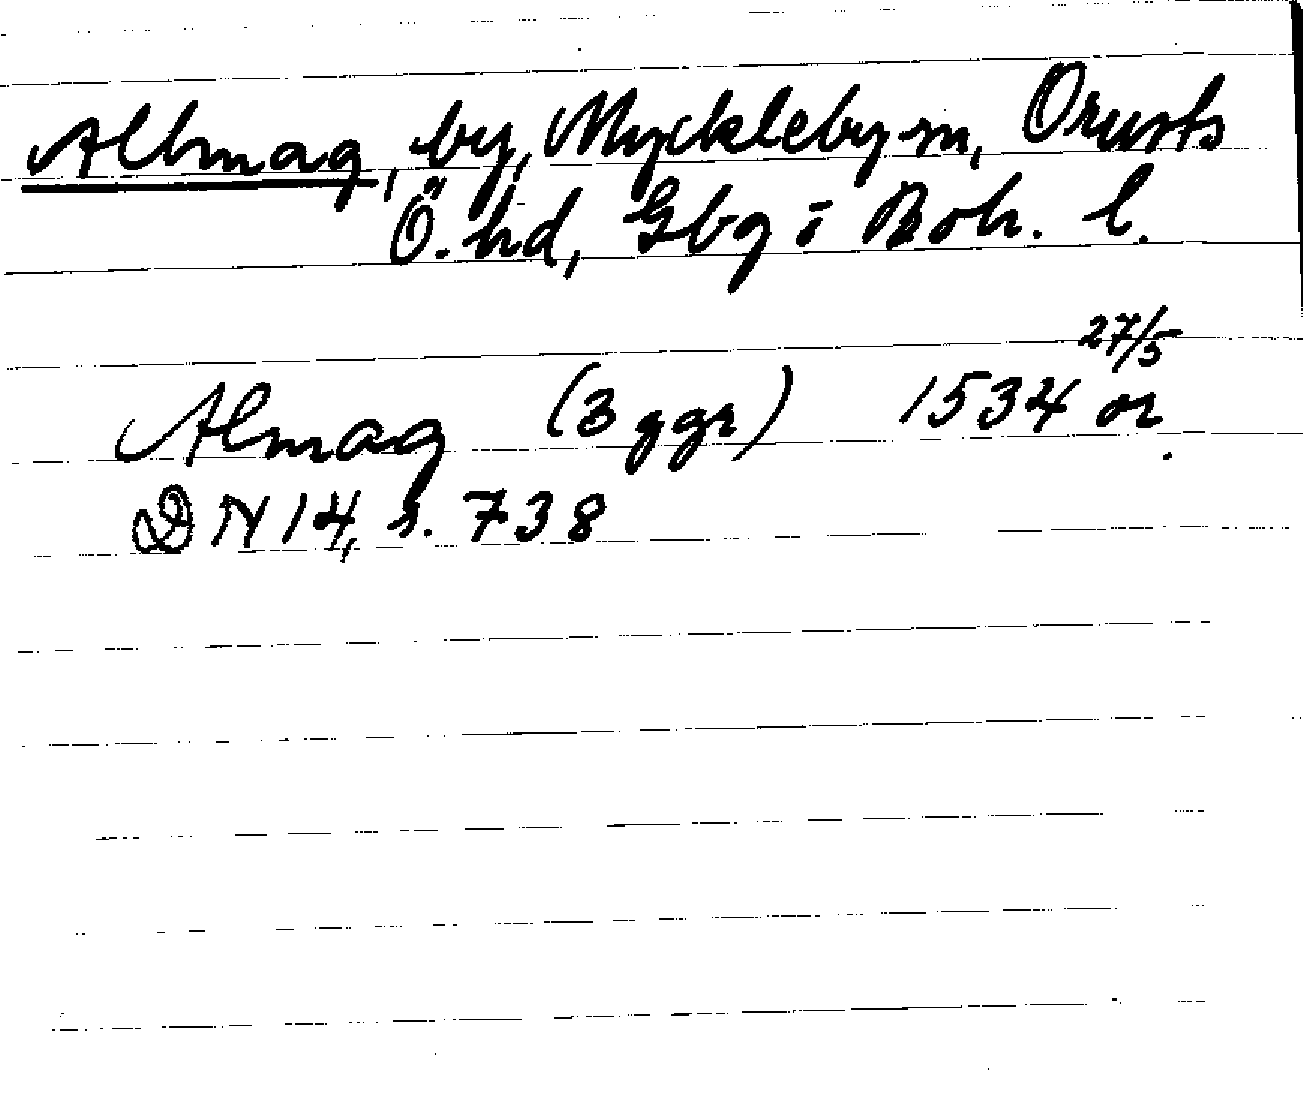 Allmag, by, Myckleby sn, Orusts
Ö. hd, Gbg i Boh. l.
Almag (3 ggr) 1534 27/5 or.
DN 14, s. 738